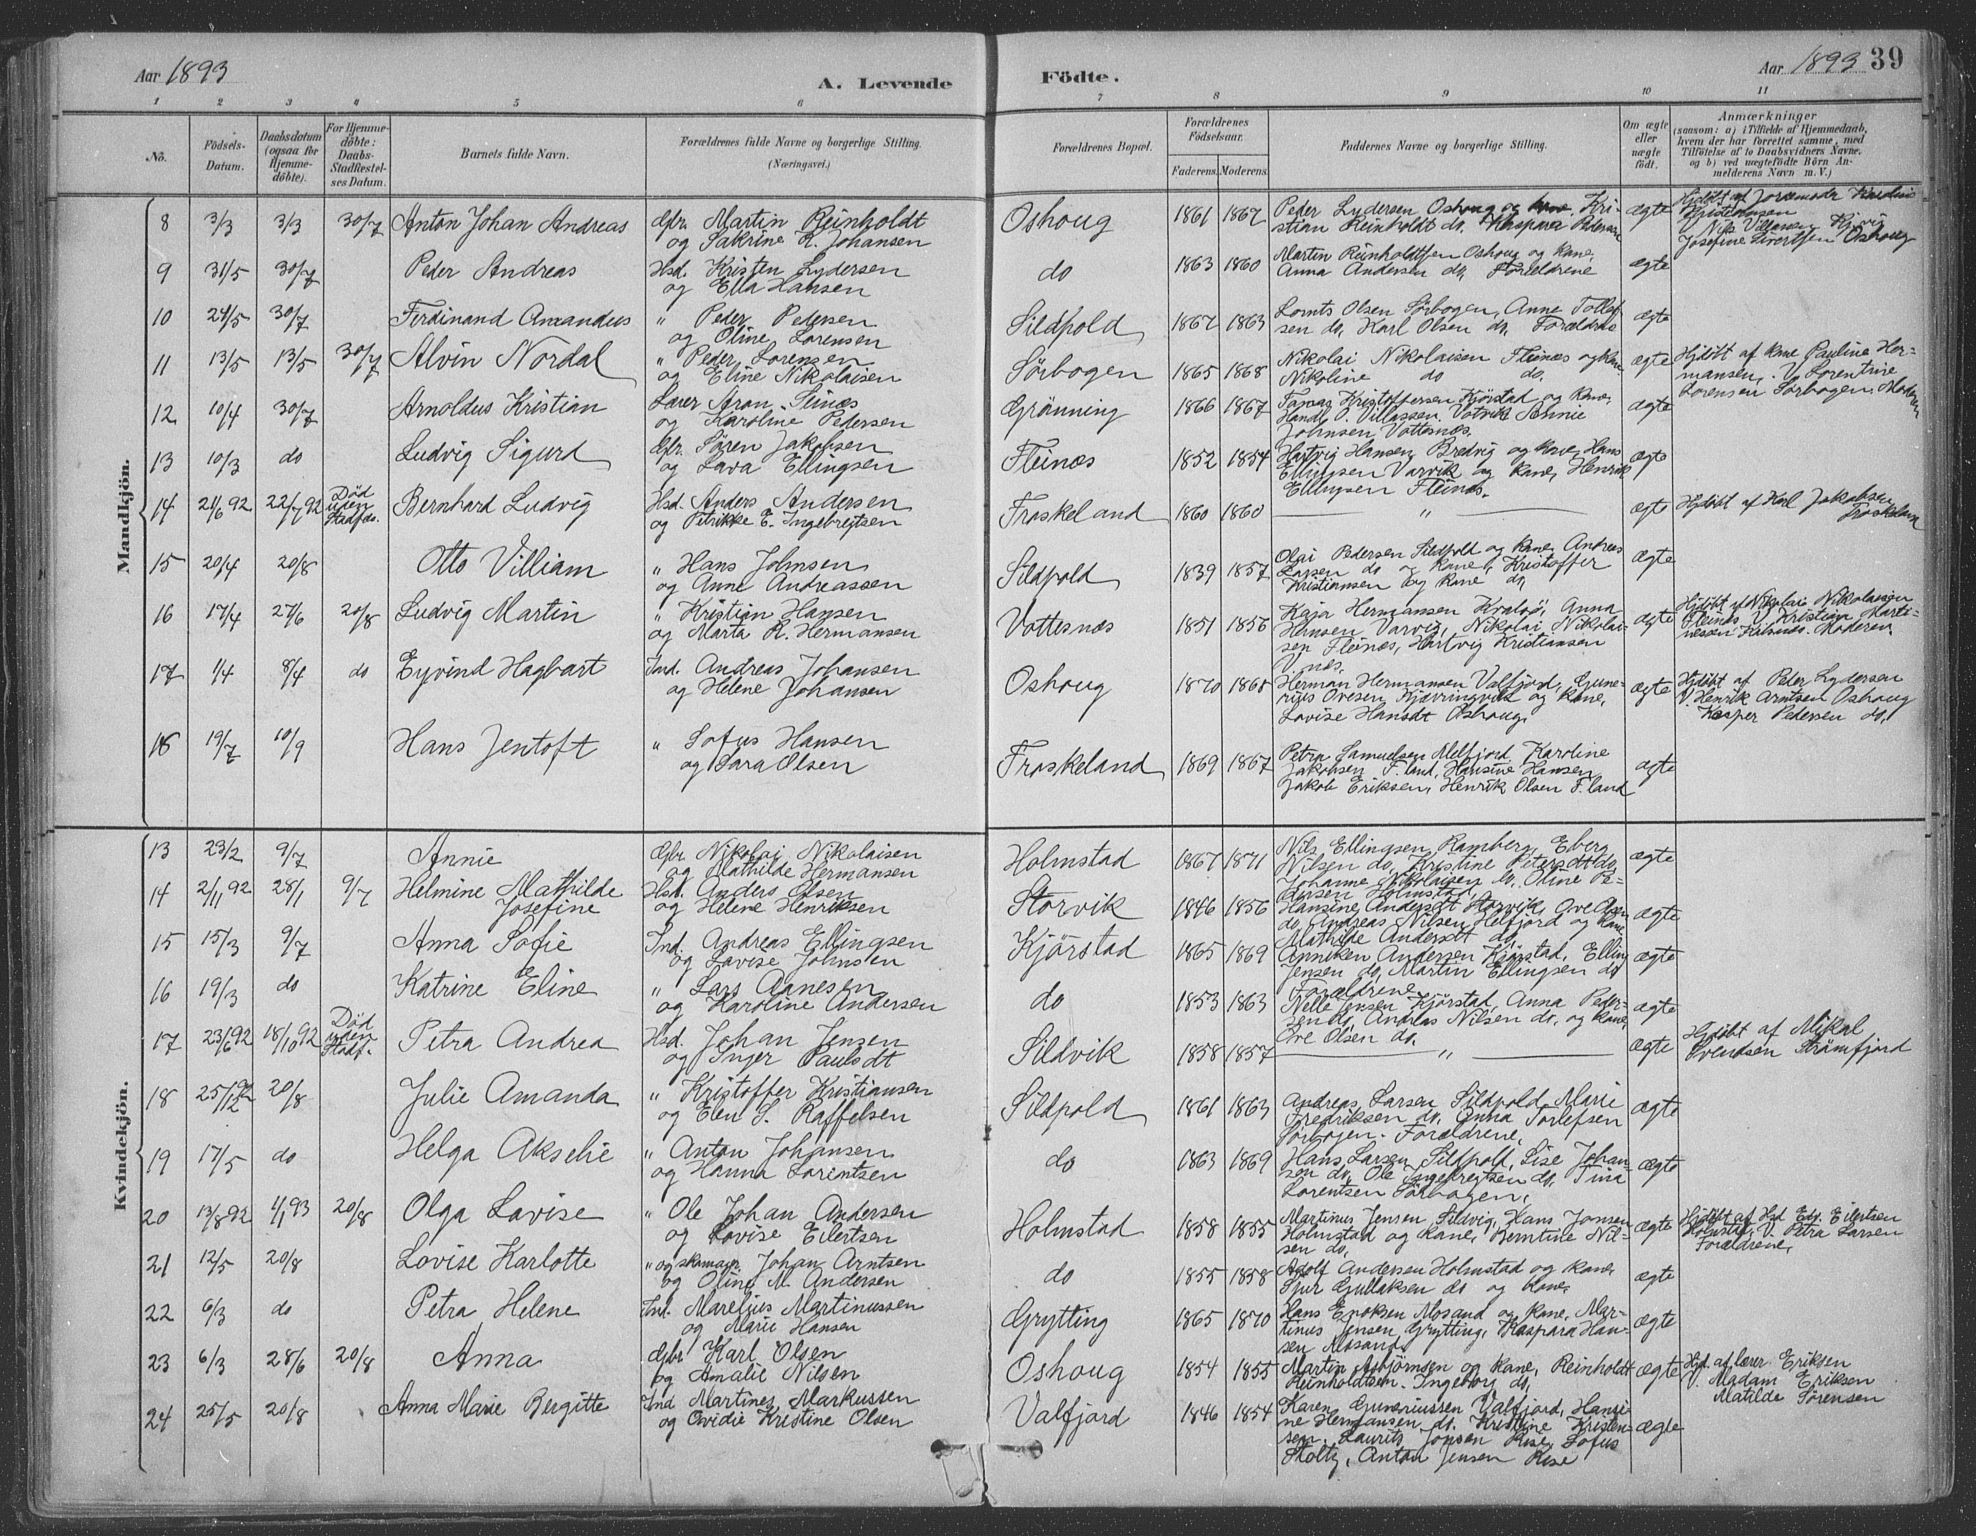 Aar 1893
A. Levende
Födte.
Aar 1893 39
1 2 3 4 5 6 7 8 9 10 11
No.
Födsels-Datum.
Daabsdatum (ogsaa for Hjemme-döbte).
For Hjemme-döbte: Daabs-Stadfæstel-ses Datum.
Barnets fulde Navn.
Forældrenes fulde Navne og borgerlige Stilling. (Næringsvei.)
Forældrenes Bopæl.
Forældrenes Födselsaar.
Faderens. Moderens.
Faddernes Navne og borgerlige Stilling.
Om ægte eller uægte födt.
Anmærkninger
(saasom: a) i Tilfælde af Hjemmedaab, hvem der har forrettet samme, med Tilföielse af to Daabsvidners Navne, og b) ved uægtefödte Börn Anmelderens Navn m. V.)
Mandkjön.
8 3/3 3/3 30/7 Anton Johan Andreas Gbr. Martin Reinholdt
og Sakrine R. Johansen
Oshoug 1861 1867 Peder Lydersen Oshoug og Kri-
stian Reinholdt do, Kaspara Pedersen
ægte Hjdöbt af Jordemoder
Kristiansen
V. Nils Villassen Kjörvig
Josefine Sivertsen Oshoug
9 31/5 30/7 Peder Andreas Hsd. Kristen Lydersen
og Ella Hansen
do 1863 1860 Martin Reinholdtsen Oshoug og kane,
Anna Andersen do, Forældrene
ægte
10 24/5 30/7 Ferdinand Amandus " Peder Pedersen
og Oline Lorensen
Sildpold 1867 1863 Lornts Olsen Sörbogen, Anne Tollef-
sen do, Karl Olsen do, Forældrene
ægte
11 13/5 13/5 30/7 Alvin Nordal " Peder Lorensen
og Eline Nikolaisen
Sörbogen 1865 1868 Nikolai Nikolaisen Fleinæs og kane
Nikoline do do.
ægte Hjdöbt af kane Pauline Her-
mansen, V. Lorentrine
Lorensen Sörbogen, Moderen
12 10/4 30/7 Arnoldus Kristian Lærer Aron Seinæs
og Karoline Pedersen
Grönning 1866 1867 Kristoffersen Kjörstad og kane,
O. Villassen,
Johnsen Vottesnæs.
ægte
13 10/3 do Ludvig Sigurd Gbr. Sören Jakobsen
og Lava Ellingsen
Fleinæs 1852 1854 Hartvig Hansen Bredvig og kane, Hans
Ellingsen Varvik og kane, Henrik
Ellingsen Fleinæs.
ægte
14 21/6 92 22/7 92 Död uden Stadfæs. Bernhard Ludvig Hsd. Anders Andersen
og Petrikke E. Ingebregtsen
Froskeland 1860 1860 " ægte Hjdöbt af Karl Jakobsen
Froskeland
15 20/4 20/8 Otto Villiam " Hans Johnsen
og Anne Andreassen
Sildpold 1839 1857 Olai Pedersen Sildpold og kane, Andreas
Larsen do og kane, Kristoffer
Kristiansen og kane do,
ægte
16 17/4 27/6 20/8 Ludvig Martin " Kristian Hansen
og Marta R. Hermansen
Vottesnæs 1851 1856 Kaja Hermansen Kralsö, Anna
Hansen Varvig, Nikolai Nikolai-
sen Fleinæs, Hartvig Kristiansen
V.næs.
ægte Hjdöbt af Nikolai Nikolaisen
Fleinæs V. Kristian Marti-
nessen, Moderen
17 1/4 8/4 do Eyvind Hagbart Ind. Andreas Johansen
og Helene Johansen
Oshoug 1870 1868 Herman Hermansen Valfjord, Gune-
rius Ovesen, Kjævringvik og kane,
Lovise Hansdt Oshoug,
ægte Hjdöbt af Peder Lydersen
V. Henrik Arntsen Oshoug
Kasper Pedersen do,
18 19/7 10/9 Hans Jentoft " Sofus Hansen
og Sara Olsen
Froskeland 1869 1867 Petra Samuelsen Melfjord, Karoline
Jakobsen F.land, Hansine Hansen,
Jakob Eriksen, Henrik Olsen F.land
ægte
Kvindekjön.
13 23/2 9/7 Annie Gbr. Nikolai Nikolaisen
og Mathilde Hermansen
Holmstad 1867 1871 Nils Ellingsen Ramberg, Eberg
Nilsen do, Kristine Petersdt do,
Johanne Nikolaisen do, Oline Pe-
dersen Holmstad,
ægte
14 2/11 92 28/1 9/7 Helmine Mathilde
Josefine
Hsd. Anders Olsen
og Helene Henriksen
Storvik 1846 1856 Hansine Andersdt Storvik, Ove Olsen
do, Andreas Nilsen Melfjord og kane
Mathilde Andersdt do,
ægte
15 15/3 9/7 Anna Sofie Ind. Andreas Ellingsen
og Lovise Johnsen
Kjörstad 1865 1869 Anniken Andersen Kjörstad, Elling
Jensen do, Martin Ellingsen do
Forældrene,
ægte
16 19/3 do Katrine Eline " Lars Aanesen
og Karoline Andersen
do 1853 1863 Nelle Jensen Kjörstad, Anna Peder-
sen do, Andreas Nilsen do, og kane,
Ove Olsen do,
ægte
17 23/6 92 18/10 92 Död uden Stadf. Petra Andrea Hsd. Johan Jensen
og Inger Paulsdt
Sildvik 1858 1857 " ægte Hjdöbt af Mikal
Svendsen Strömfjord
18 25/12 92 20/8 Julie Amanda " Kristoffer Kristiansen
og Elen S. Raffelsen
Sildpold 1861 1863 Andreas Larsen Sildpold, Marie
Fredriksen do, Anna Torlefsen
Sörbogen. Forældrene,
ægte
19 17/5 do Helga Akselie " Anton Johansen
og Hanna Lorentsen
do 1863 1869 Hans Larsen Sildpold, Lise Johan-
sen do, Ole Ingebregtsen do, Tina
Lorentsen Sörbogen,
ægte
20 13/8 92 4/1 93 20/8 Olga Lovise " Ole Johan Andersen
og Lovise Eilertsen
Holmstad 1858 1855 Martinus Jensen Sildvig, Hans Jonsen
Holmstad og kane, Berntine Nil-
sen do,
ægte Hjdöbt af Hsd Edv. Eilertsen
Holmstad, V. Petra Larsen
Forældrene,
21 12/5 20/8 Lovise Karlotte " og skomagr. Johan Arntsen
og Oline M. Andersen
do 1855 1858 Adolf Andersen Holmstad og kane,
Sjur Gullaksen do og kane,
ægte
22 6/3 do Petra Helene Ind. Marelius Martinussen
og Marie Hansen
Grytting 1865 1870 Hans Enoksen Mosand og kane, Mar-
tinus Jensen Grytting, Kaspara Han-
sen Mosand,
ægte
23 6/3 28/6 20/8 Anna Gbr Karl Olsen
og Amalie Nilsen
Oshoug 1854 1855 Martin Asbjörnsen og kane, Reinholdt
Reinholdtsen. Ingeborg do,
ægte Hjd. af lærer Eriksen
V. Madam Eriksen
Matilde Sörensen
24 25/5 20/8 Anna Marie Bergitte Ind Martines Markussen
og Ovidie Kristine Olsen
Valfjord 1846 1854 Karen Gunariussen Valfjord, Hansi-
ne Hermansen do, Kristine Kristen-
sen. Laurits Jonsen Rise, Sofus
Stoltz, Anton Jensen Rise
ægte